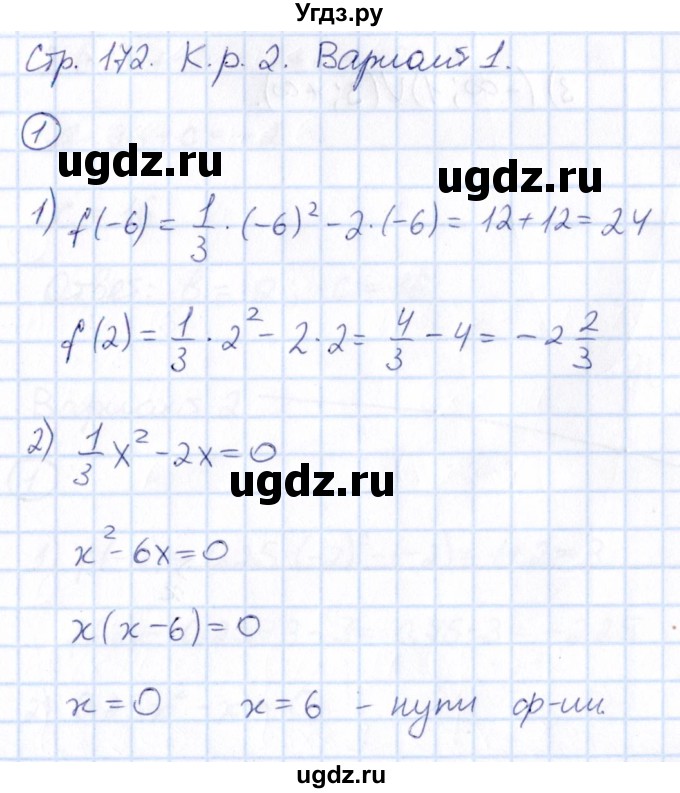 Угдз.ру
Стр. 172. К.р. 2. Вариант 1.
1
ugdz.ru ugdz.ru
1) f(-6) = 1/3 · (-6)² - 2 · (-6) = 12 + 12 = 24
f(2) = 1/3 · 2² - 2 · 2 = 4/3 - 4 = -2 2/3
2) 1/3 x² - 2x = 0
ugdz.ru
x² - 6x = 0
x(x - 6) = 0
x = 0 x = 6 - нули ф-ии.
ugdz.ru